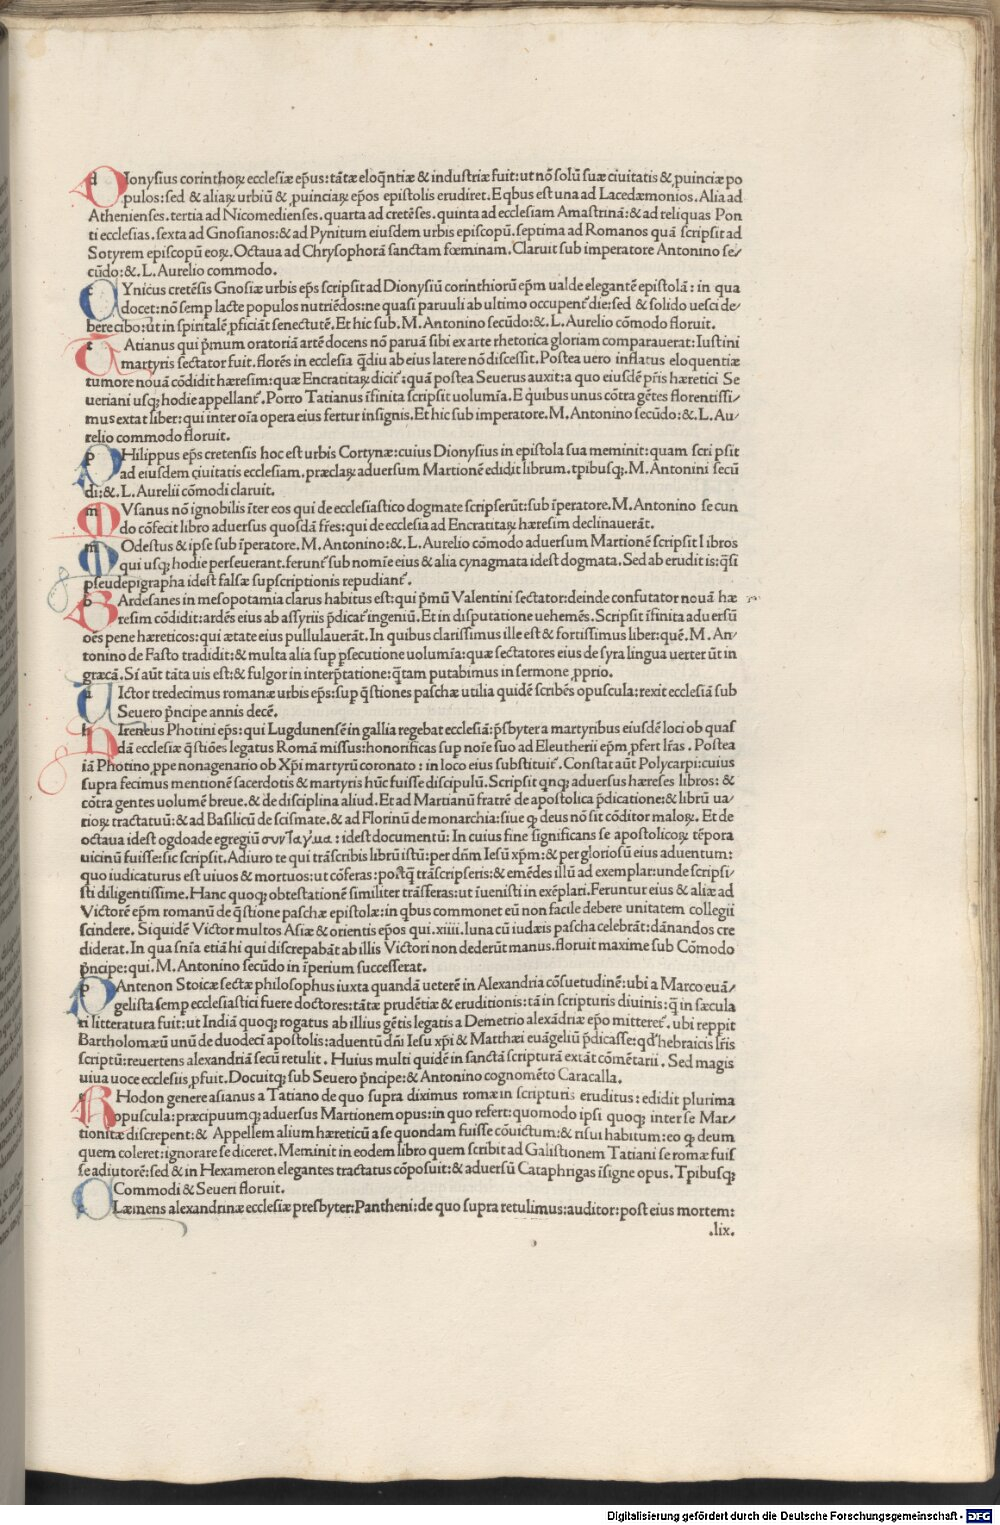 DIonysius corinthoꝝ ecclesiæ ep̄us:tātæ eloq̄ntiæ & industriæ fuit:ut nō solū suæ ciuitatis & ꝓuinciæ po
pulos:sed & aliaꝝ urbiū & ꝓuinciaꝝ ep̄os epistolis erudiret. Eqbus est una ad Lacedæmonios. Alia ad
Athenienses. tertia ad Nicomedienses. quarta ad cretēses. quinta ad ecclesiam Amastrinā:& ad reliquas Pon
ti ecclesias. sexta ad Gnosianos:& ad Pynitum eiusdem urbis episcopū. septima ad Romanos quā scripsit ad
Sotyrem episcopū eoꝝ. Octaua ad Chrysophorā sanctam fœminam. Claruit sub imperatore Antonino se/
cūdo:&. L. Aurelio commodo.
CYnicus cretēsis Gnosiæ urbis ep̄s scripsit ad Dionysiū corinthiorū ep̄m ualde elegantē epistolā: in qua
docet:nō semp lacte populos nutriēdos:ne quasi paruuli ab ultimo occupent̄ die:sed & solido uesci de/
bere cibo:ut in spiritalē ꝓficiāt senectutē. Et hic sub. M. Antonino secūdo:&. L. Aurelio cōmodo floruit.
TAtianus qui p̄mum oratoriā artē docens nō paruā sibi ex arte rhetorica gloriam comparauerat:Iustini
martyris sectator fuit. florēs in ecclesia q̄diu ab eius latere nō discessit. Postea uero inflatus eloquentiæ
tumore nouā cōdidit hæresim:quæ Encratitaꝝ dicit̄:quā postea Seuerus auxit:a quo eiusdē p̄ris hæretici Se
ueriani usqꝫ hodie appellant̄. Porro Tatianus īfinita scripsit uolumīa. E quibus unus cōtra gētes florentissi/
mus extat liber:qui inter oīa opera eius fertur insignis. Et hic sub imperatore. M. Antonino secūdo:&. L. Au/
relio commodo floruit.
PHilippus ep̄s cretensis hoc est urbis Cortynæ:cuius Dionysius in epistola sua meminit:quam scri psit
ad eiusdem çiuitatis ecclesiam. præclaꝝ aduersum Martionē edidit librum. tpibusqꝫ. M. Antonini secū
di:&. L. Aurelii cōmodi claruit.
MVsanus nō ignobilis īter eos qui de ecclesiastico dogmate scripserūt:sub īperatore. M. Antonino se cun
do cōfecit libro aduersus quosdā fr̄es:qui de ecclesia ad Encratitaꝝ hæresim declinauerāt.
MOdestus & ipse sub īperatore. M. Antonino:&. L. Aurelio cōmodo aduersum Martionē scripsit libros
qui usqꝫ hodie perseuerant. ferunt̄ sub nomīe eius & alia cynagmata idest dogmata. Sed ab erudit is:q̄si
pseudepigrapha idest falsæ supscriptionis repudiant̄.
BArdesanes in mesopotamia clarus habitus est:qui p̄mū Valentini sectator:deinde confutator nouā hæ
resim cōdidit:ardēs eius ab assyriis p̄dicat̄ ingeniū. Et in disputatione uehemēs. Scripsit īfinita aduersū
oēs pene hæreticos:qui ætate eius pullulauerāt. In quibus clarissimus ille est & fortissimus liber:quē. M. An/
tonino de Fasto tradidit:& multa alia sup psecutione uolumīa:quæ sectatores eius de syra lingua uerter ūt in
græcā. Si aūt tāta uis est:& fulgor in interp̄tatione:q̄tam putabimus in sermone ꝓprio.
UIctor tredecimus romanæ urbis ep̄s:sup q̄stiones paschæ utilia quidē scribēs opuscula:rexit ecclesiā sub
Seuero p̄ncipe annis decē.
HIreneus Photini ep̄s:qui Lugdunensē in gallia regebat ecclesiā:p̄sbyter a martyribus eiusdē loci ob quas
dā ecclesiæ q̄stiōes legatus Romā missus:honorificas sup noīe suo ad Eleutherii ep̄m ꝓfert lr̄as. Postea
iā Photino ꝓpe nonagenario ob Xp̄i martyrū coronato: in loco eius substituit̄. Constat aūt Polycarpi:cuius
supra fecimus mentionē sacerdotis & martyris hūc fuisse discipulū. Scripsit qnqꝫ aduersus hæreses libros: &
cōtra gentes uolumē breue. & de disciplina aliud. Et ad Martianū fratrē de apostolica p̄dicatione:& librū ua/
rioꝝ tractatuū:& ad Basilicū de scismate. & ad Florinū de monarchia:siue ꝙ deus nō sit cōditor maloꝝ. Et de
octaua idest ogdoade egregiū συνταγμα: idest documentū: In cuius fine significans se apostolicoꝝ tēpora
uicinū fuisse:sic scripsit. Adiuro te qui trāscribis librū istū:per dn̄m Iesū xp̄m:& per gloriosū eius aduentum:
quo iudicaturus est uiuos & mortuos:ut cōferas:postq̄ trāscripseris:& emēdes illū ad exemplar:unde scripsi/
sti diligentissime. Hanc quoqꝫ obtestationē similiter trāsferas:ut īuenisti in exēplari. Feruntur eius & aliæ ad
Victorē ep̄m romanū de q̄stione paschæ epistolæ:in qbus commonet eū non facile debere unitatem collegii
scindere. Siquidē Victor multos Asiæ & orientis ep̄os qui. xiiii. luna cū iudæis pascha celebrāt:dānandos cre
diderat. In qua sn̄ia etiā hi qui discrepabāt ab illis Victori non dederūt manus. floruit maxime sub Cōmodo
p̄ncipe:qui. M. Antonino secūdo in īperium successerat.
PAntenon Stoicæ sectæ philosophus iuxta quandā ueterē in Alexandria cōsuetudinē:ubi a Marco euā/
gelista semp ecclesiastici fuere doctores:tātæ prudētiæ & eruditionis:tā in scripturis diuinis:q̄ in sæcula
ri litteratura fuit:ut Indiā quoqꝫ rogatus ab illius gētis legatis a Demetrio alexādriæ ep̄o mitteret̄. ubi reppit
Bartholomæū unū de duodeci apostolis:aduentū dn̄i Iesu xp̄i & Matthæi euāgeliū p̄dicasse:qd̄ hebraicis lr̄is
scriptū:reuertens alexandriā secū retulit. Huius multi quidē in sanctā scripturā extāt cōmētarii. Sed magis
uiua uoce ecclesiis ꝓfuit. Docuitqꝫ sub Seuero p̄ncipe:& Antonino cognomēto Caracalla.
RHodon genere asianus a Tatiano de quo supra diximus romæ in scripturis eruditus: edidit plurima
opuscula:præcipuumqꝫ aduersus Martionem opus:in quo refert:quomodo ipsi quoqꝫ inter se Mar/
tionitæ discrepent:& Appellem alium hæreticū a se quondam fuisse cōuictum:& risui habitum:eo ꝙ deum
quem coleret:ignorare se diceret. Meminit in eodem libro quem scribit ad Galistionem Tatiani se romæ fuis
se adiutorē:sed & in Hexameron elegantes tractatus cōposuit:& aduersū Cataphrigas īsigne opus. Tpibusqꝫ
Commodi & Seueri floruit.
CLæmens alexandrinæ ecclesiæ presbyter:Pantheni:de quo supra retulimus:auditor:post eius mortem:
.lix.
Digitalisierung gefördert durch die Deutsche Forschungsgemeinschaft - DFG